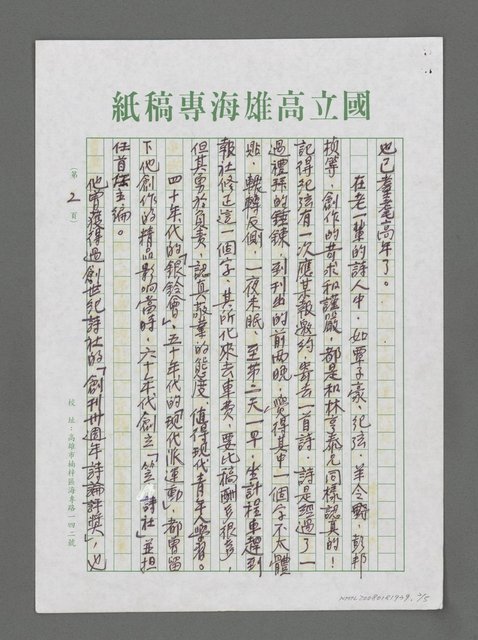 國立高雄海專稿紙
也已耄耋高年了。
在老一輩的詩人中,如覃子豪、紀弦、羊令野、彭邦
楨等,創作的苛求和謹嚴,都是和林亨泰兄同樣認真的!
記得紀弦有一次應某報邀約,寄去一首詩,詩是經過了一
過禮拜的錘鍊,到刊出的前兩晚,覺得其中一個字不太體
貼,輾轉反側,一夜未眠,至第二天一早,坐計程車趕到
報社修正這一個字,其所化來去車費,要比稿酬多很多,
但其勇於負責,認真敬業的態度,值得現代青年人學習。
四十年代的「銀鈴會」,五十年代的「現代派運動」,都曾留
下他創作的精品影響當時,六十年代創立「笠」詩社,並担
任首任主編。
他曾獲得過創世紀詩社的「創刊卅週年詩論評獎」,也
(第2頁)
校址:高雄市楠梓區海專路一四二號
NMTL20080181949, 2/5